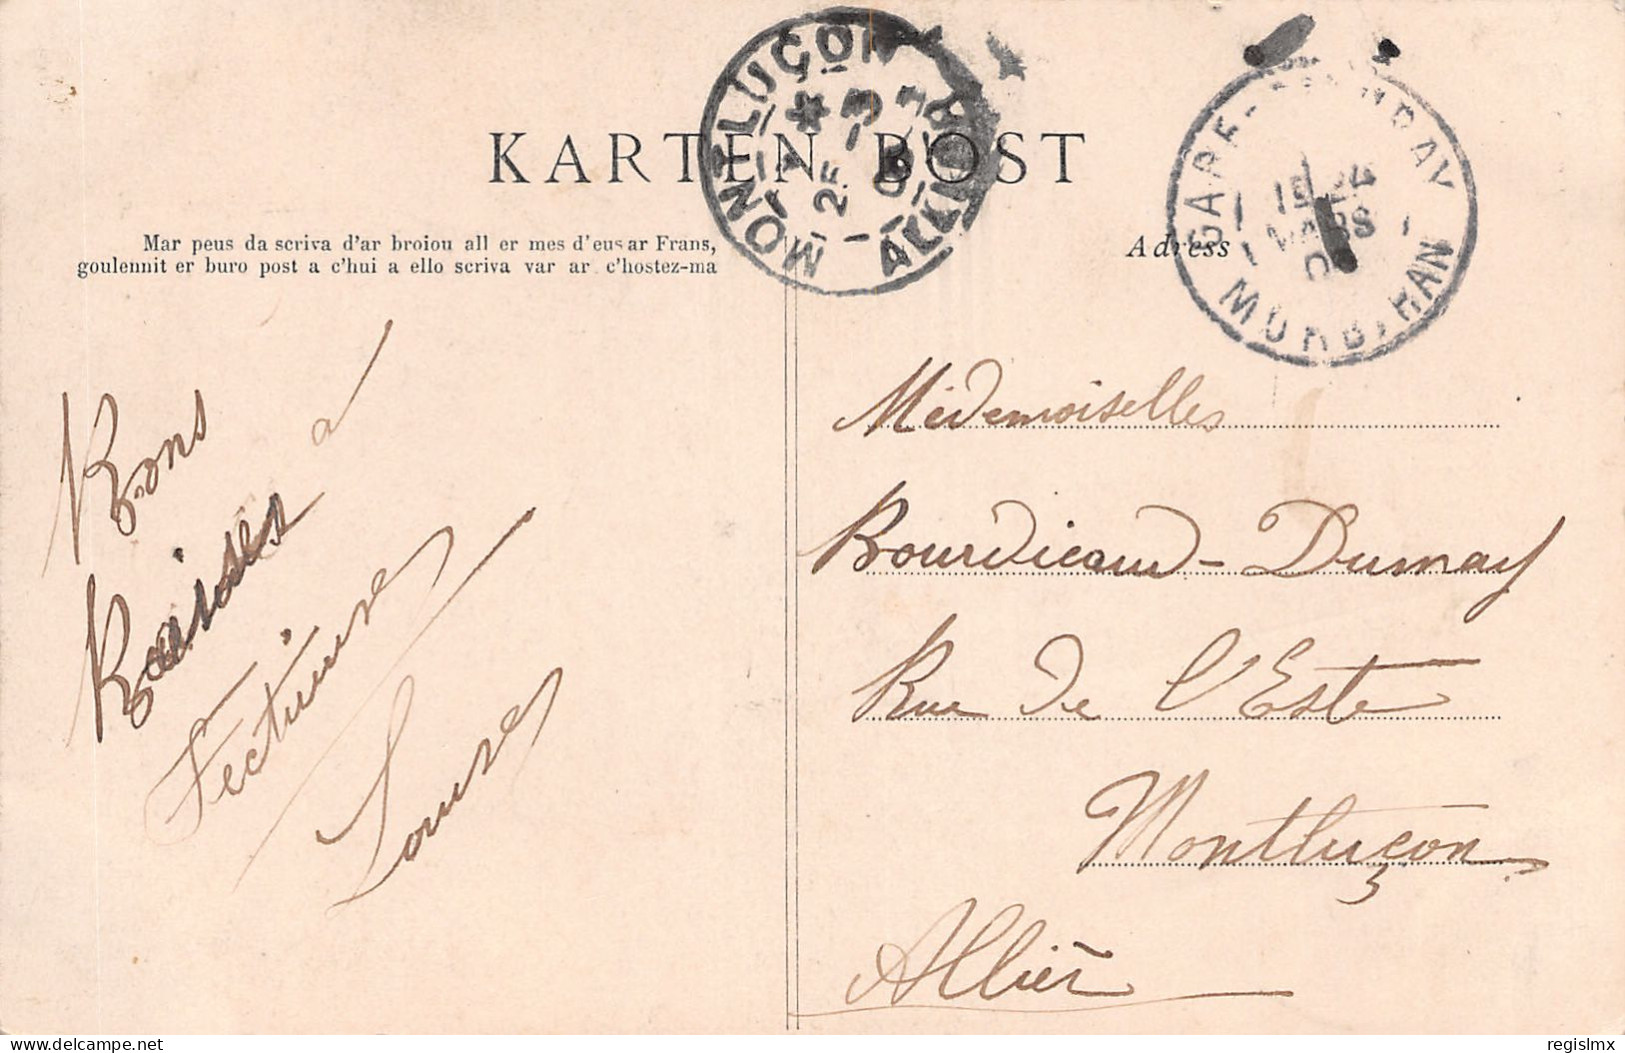 KARTEN BOST
Mar peus da scriva d'ar broiou all er mes d'eus ar Frans,
goulennit er buro post a c'hui a ello scriva var ar c'hostez-ma
Adress
MONTLUÇON
ALLIER
25 -3
GARE
MORBIHAN
MARS
Bons
Baisers à
Louise
Médemoiselles
Bourdicaud - Dumay
Rue de l'Este
Montluçon
Allier
delcampe.net
regislmx